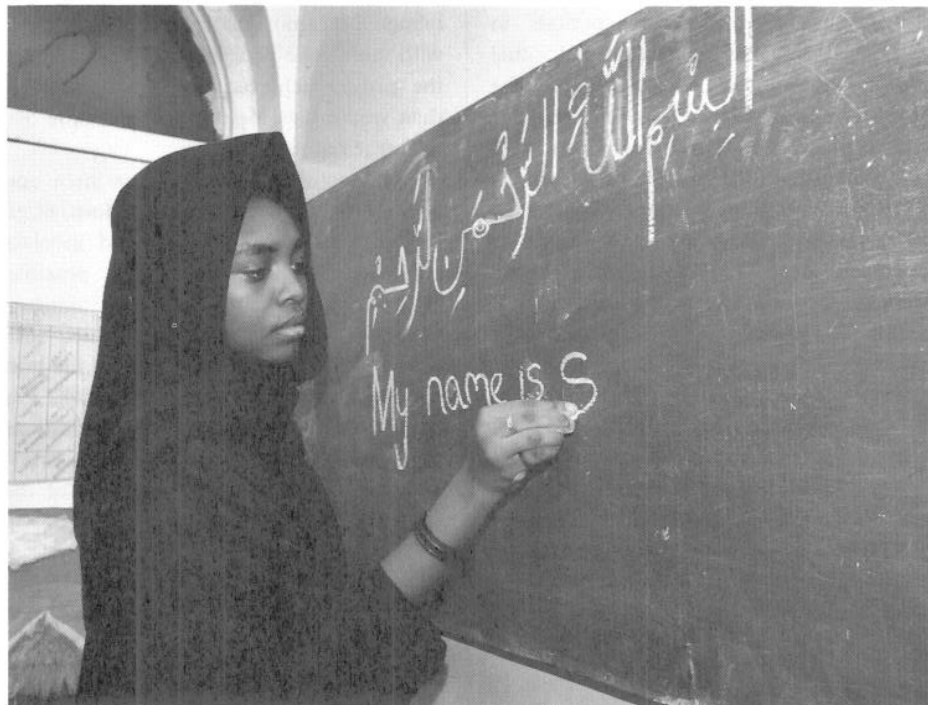 بِسْمِ اللَّهِ الرَّحْمَنِ الرَّحِيْمِ
My name is S